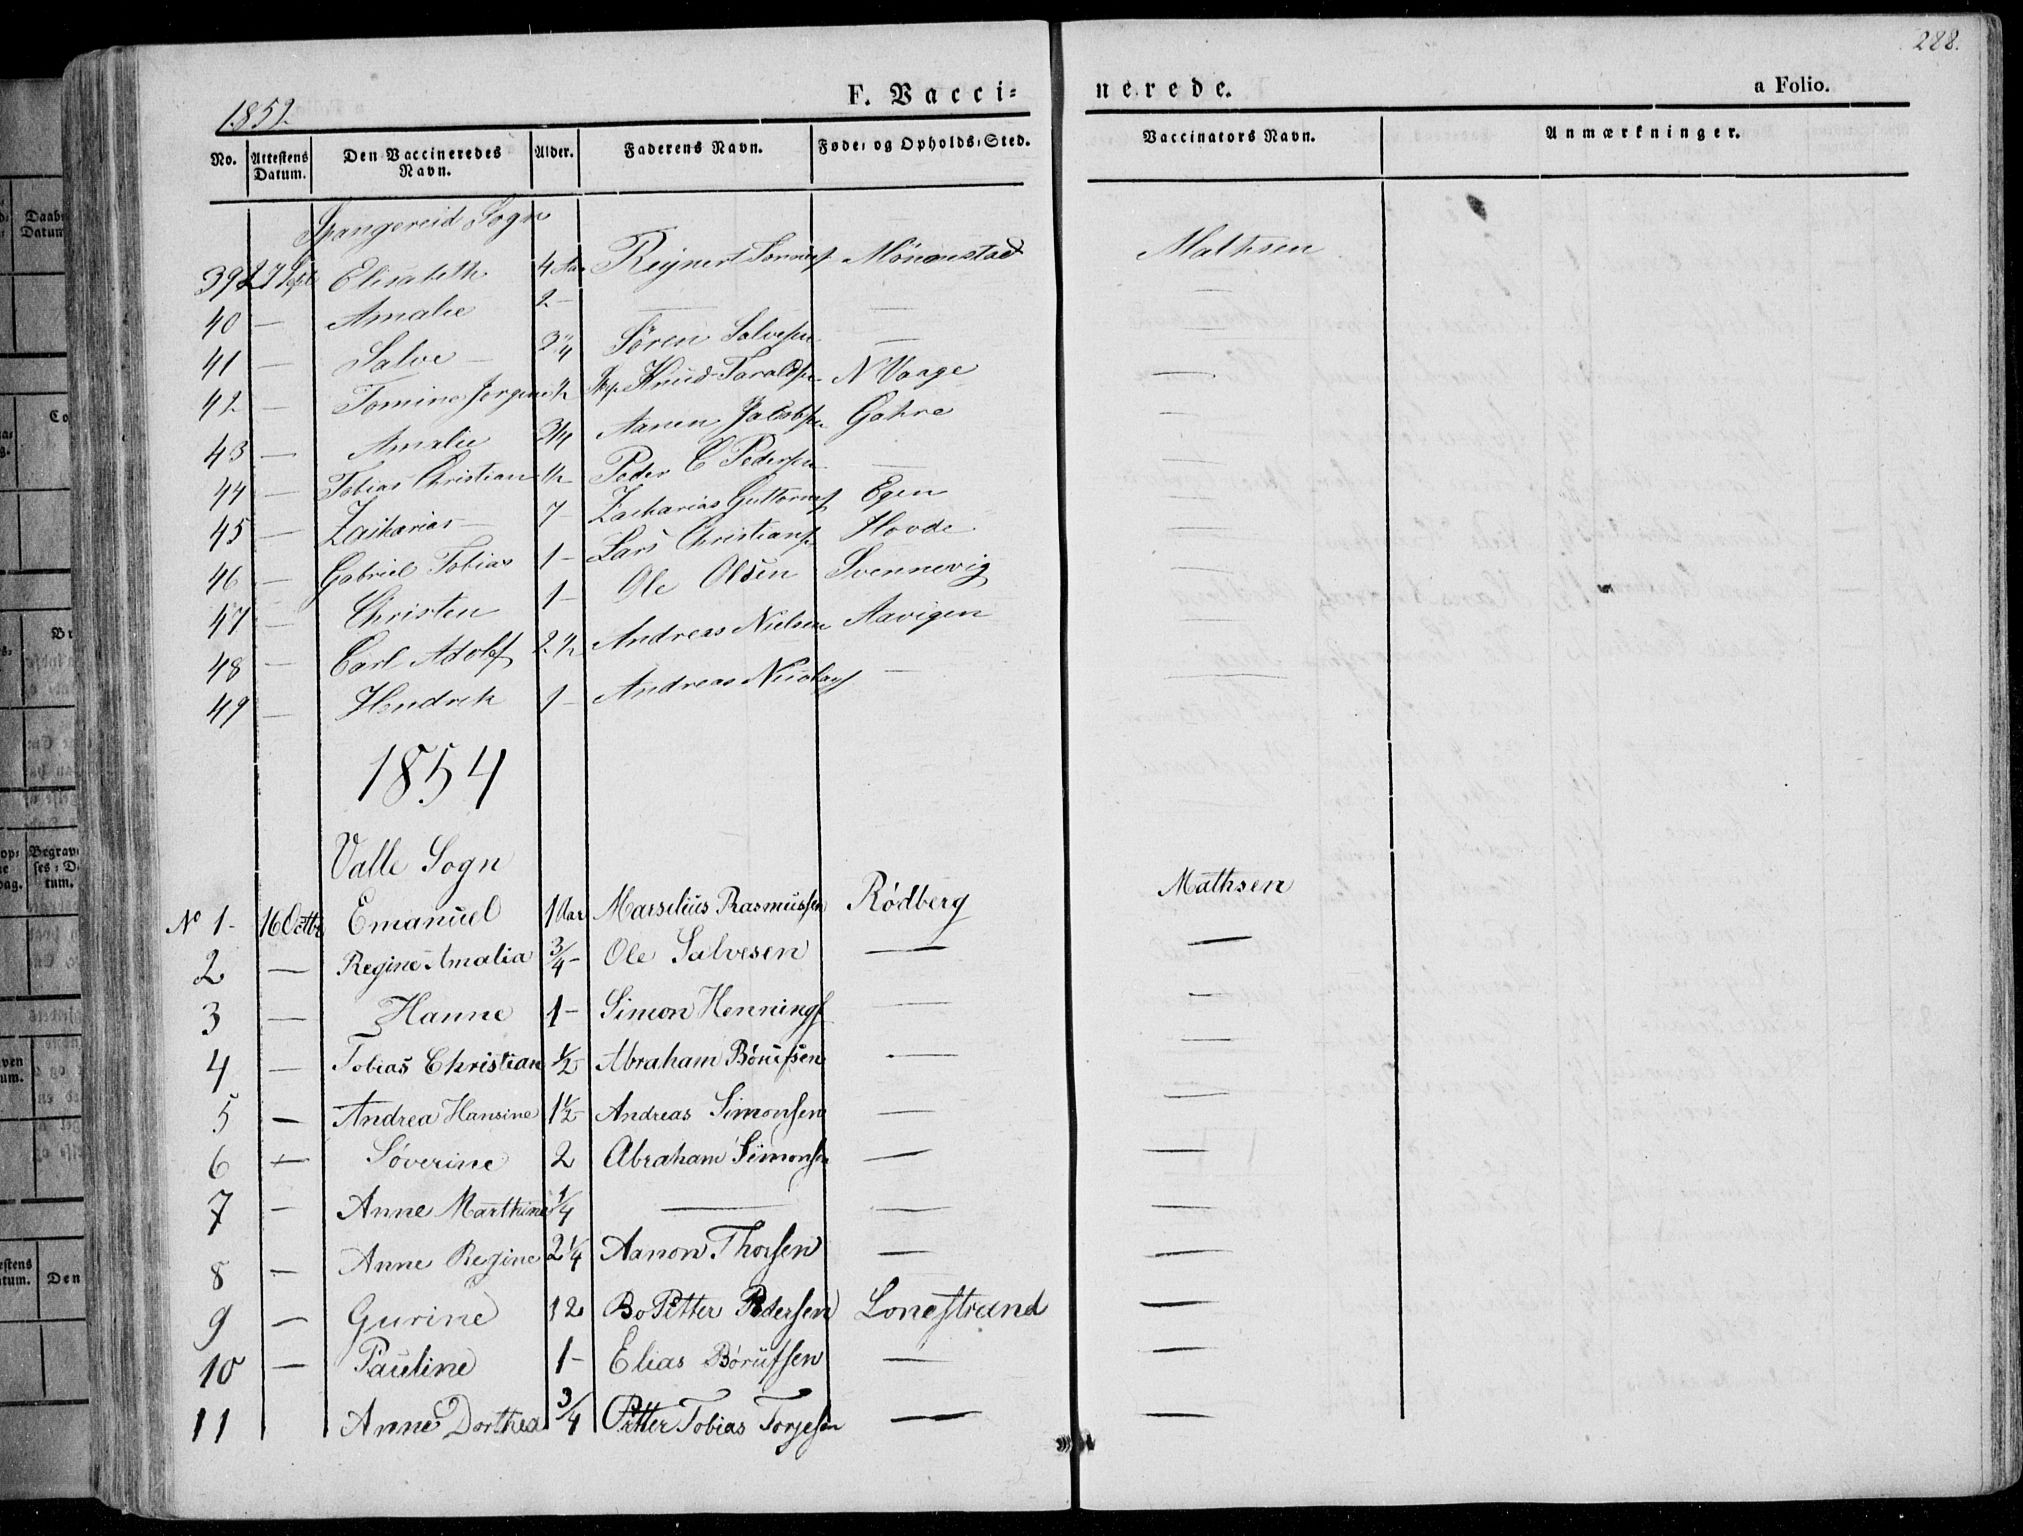 288.
1852
F. Vacci=
nerede.
a Folio.
No. Attestens Datum. Den Vaccineredes Navn. Alder. Faderens Navn. Føde- og Opholds-Sted. Vaccinators Navn. Anmærkninger.
Spangereid Sogn
39 27 Sept Elisabeth 4 Aar Reinert Mathsen
40 — Amalie 2 — — — —
41 — Salve — 2 1/4 Søren Salvesen — —
42 — Tomine Jørgine 1/2 Knud Taraldsen N Vaage —
43 — Amalie 3/4 Aanen Jacobsen Gahre —
44 — Tobias Christian 1/2 Peder C Pedersen — —
45 — Zacharias — 7 — Zacharias Guttormsf Egen —
46 — Gabriel Tobias 1 — Lars Christiansf Hovde —
47 — Christen 1 — Ole Olsen Svennevig —
48 — Carl Adolf 2 1/2 Andreas Nielsen Aavigen —
49 — Hendrik 1 — Andreas Nicolaysf — —
1854
Valle Sogn
No 1 - 16 Octbr Emanuel 1 Aar Marselius Rasmussen Rødberg Mathsen
2 — Regine Amalia 3/4 - Ole Salvesen — —
3 — Hanne 1 - Simon Henningsf — —
4 — Tobias Christian 1/2 Abraham Børufsen — —
5 — Andrea Hansine 1 1/2 Andreas Simonsen — —
6 — Søverine 2 Abraham Simonsen — —
7 — Anne Marthine 1/4 — — —
8 — Anne Regine 2 1/4 Aanon Thorsen — —
9 — Gurine 12 Bo Petter Pedersen Lonestrand —
10 — Pauline 1 - Elias Børufsen — —
11 Anne Dorthea 3/4 Petter Tobias Torjesen — —